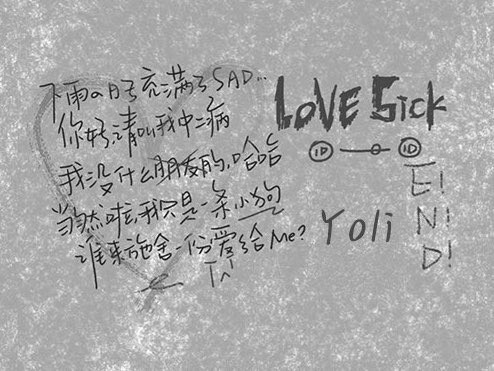 下雨の日子充满了SAD...
你好,请叫我中二病
我没什么朋友的,哈哈
当然啦,我只是一条小狗
谁来施舍一份爱给Me?
LOVE Sick
ID ID
Yoli
E!
N!
D!